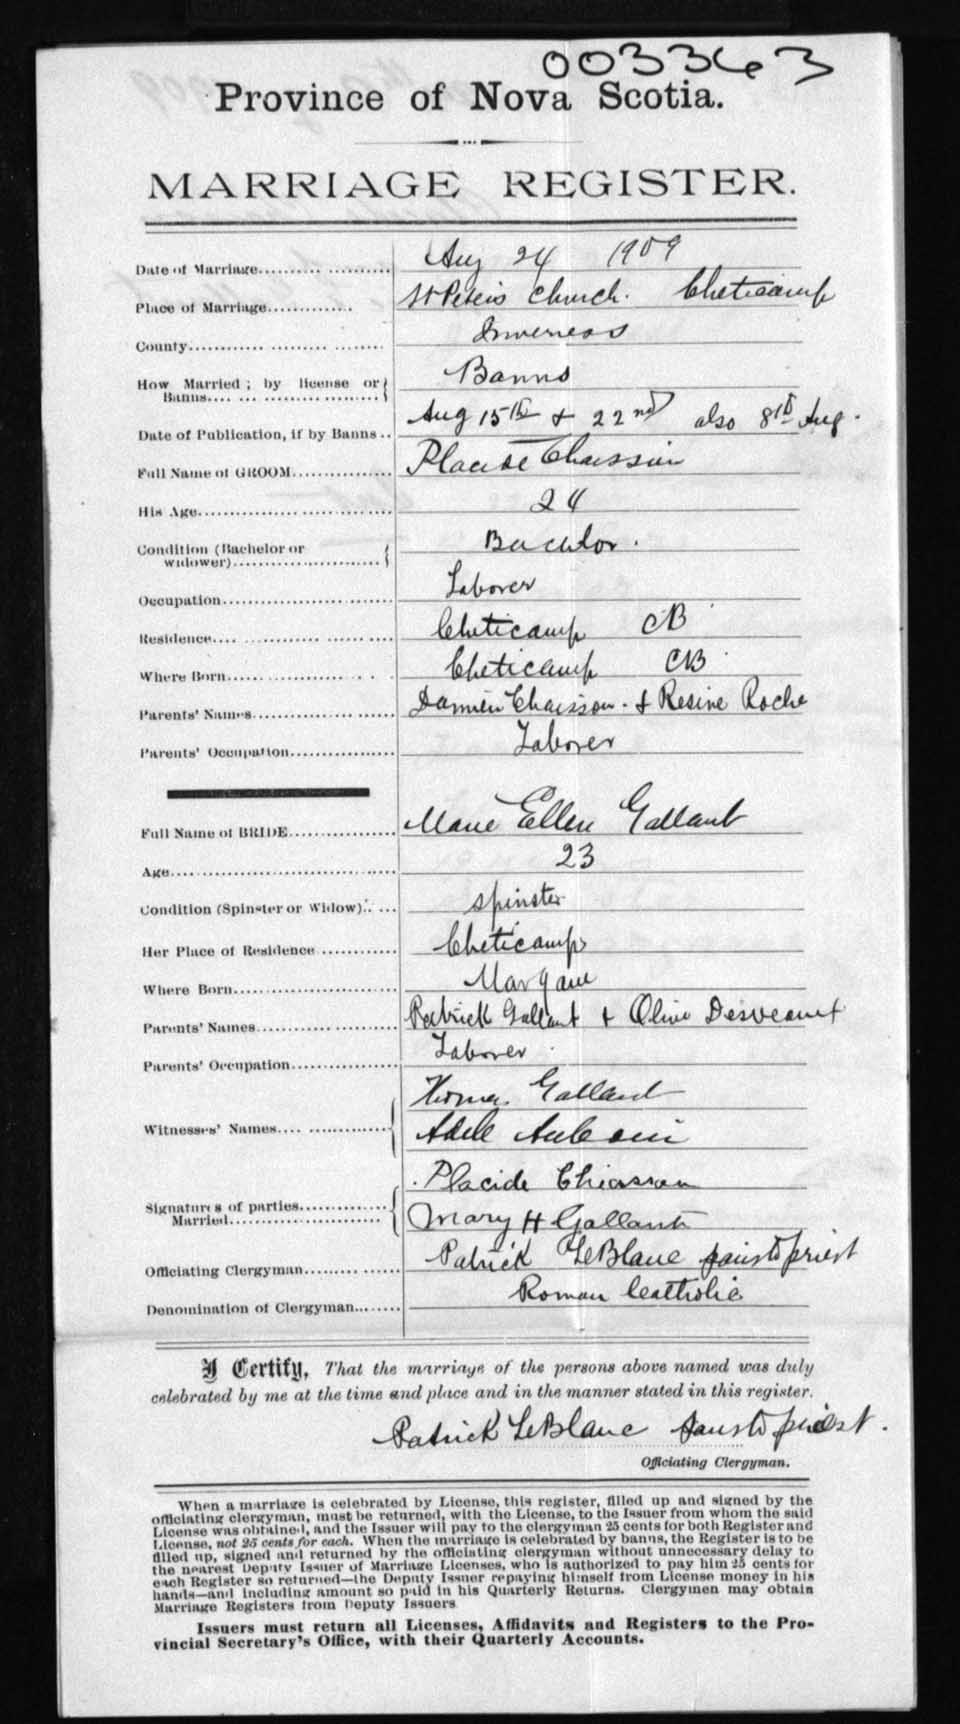 003363
Province of Nova Scotia.
MARRIAGE REGISTER.
Date of Marriage.................... Aug 24 1909
Place of Marriage............. St Peters Church. Cheticamp
County............................ Inverness
How Married ; by license or Banns............................ Banns
Date of Publication, if by Banns.. Aug 15th & 22nd also 8th Aug.
Full Name of GROOM............... Placide Chaisson
His Age............................ 24
Condition (Bachelor or widower)............................ Bachlor.
Occupation......................... Laborer
Residence.......................... Cheticamp CB
Where Born........................ Cheticamp CB
Parents' Names.................... Damien Chaisson. & Resine Roche
Parents' Occupation................ Laborer
Full Name of BRIDE................ Marie Ellen Gallant
Age................................ 23
Condition (Spinster or Widow)..... spinster
Her Place of Residence............ Cheticamp
Where Born........................ Margaree
Parents' Names.................... Patrick Gallant & Olive Desveaux
Parents' Occupation............... Laborer.
Witnesses' Names.................. Thomas Gallant
Adele Aucoin
Signatures of parties Married............................ Placide Chiasson
Mary H Gallant
Officiating Clergyman............. Patrick LeBlanc priest
Denomination of Clergyman........ Roman Catholic
I Certify, That the marriage of the persons above named was duly
celebrated by me at the time and place and in the manner stated in this register.
Patrick LeBlanc priest.
Officiating Clergyman.
When a marriage is celebrated by License, this register, filled up and signed by the
officiating clergyman, must be returned, with the License, to the Issuer from whom the said
License was obtained, and the Issuer will pay to the clergyman 25 cents for both Register and
License, not 25 cents for each. When the marriage is celebrated by banns, the Register is to be
filled up, signed and returned by the officiating clergyman without unnecessary delay to
the nearest Deputy Issuer of Marriage Licenses, who is authorized to pay him 25 cents for
each Register so returned—the Deputy Issuer repaying himself from License money in his
hands—and including amount so paid in his Quarterly Returns. Clergymen may obtain
Marriage Registers from Deputy Issuers
Issuers must return all Licenses, Affidavits and Registers to the Pro-
vincial Secretary's Office, with their Quarterly Accounts.